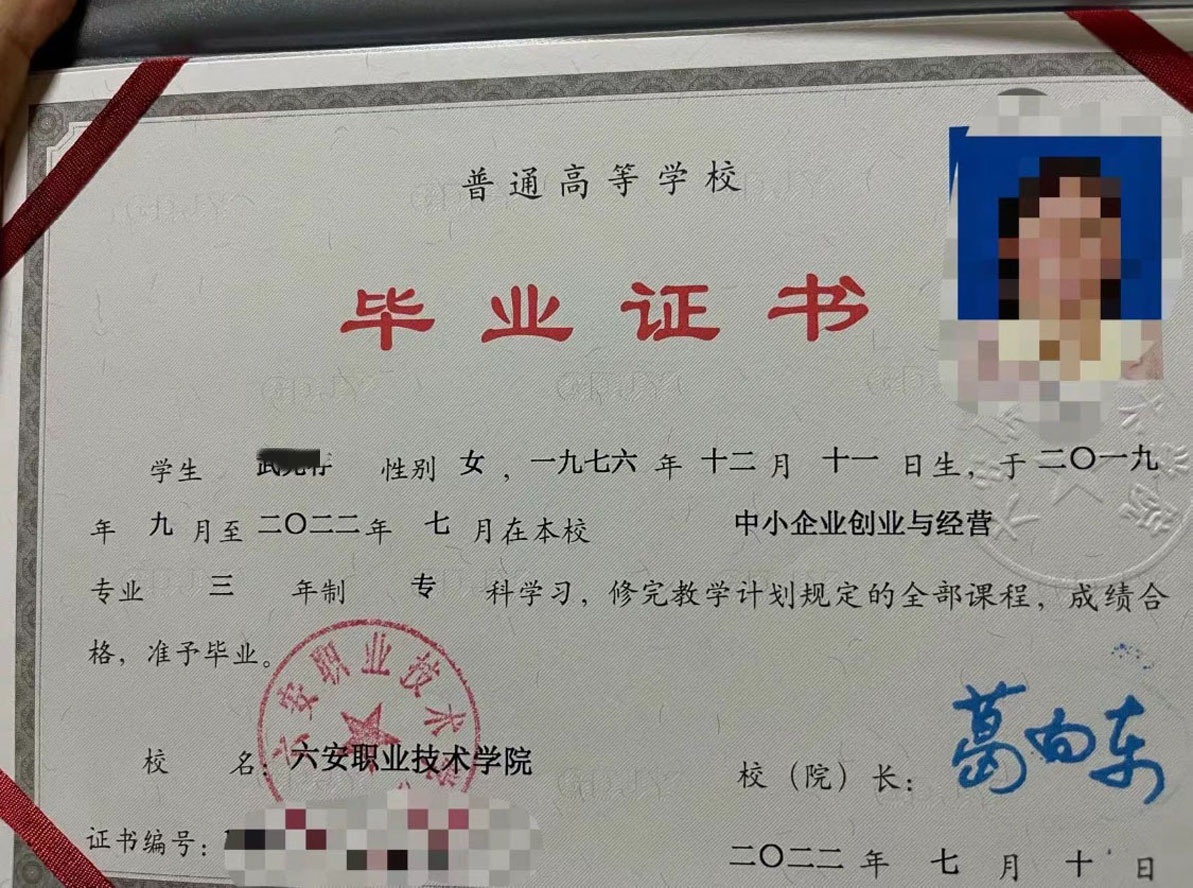 普通高等学校
毕业证书
学生 性别 女，一九七六年 十二月 十一日生，于二〇一九
年 九月至二〇二二年 七月在本校 中小企业创业与经营
专业 三 年制 专 科学习，修完教学计划规定的全部课程，成绩合
格，准予毕业。
六安职业技术
校 名：六安职业技术学院
校（院）长：葛向东
证书编号：
二〇二二年 七月 十日